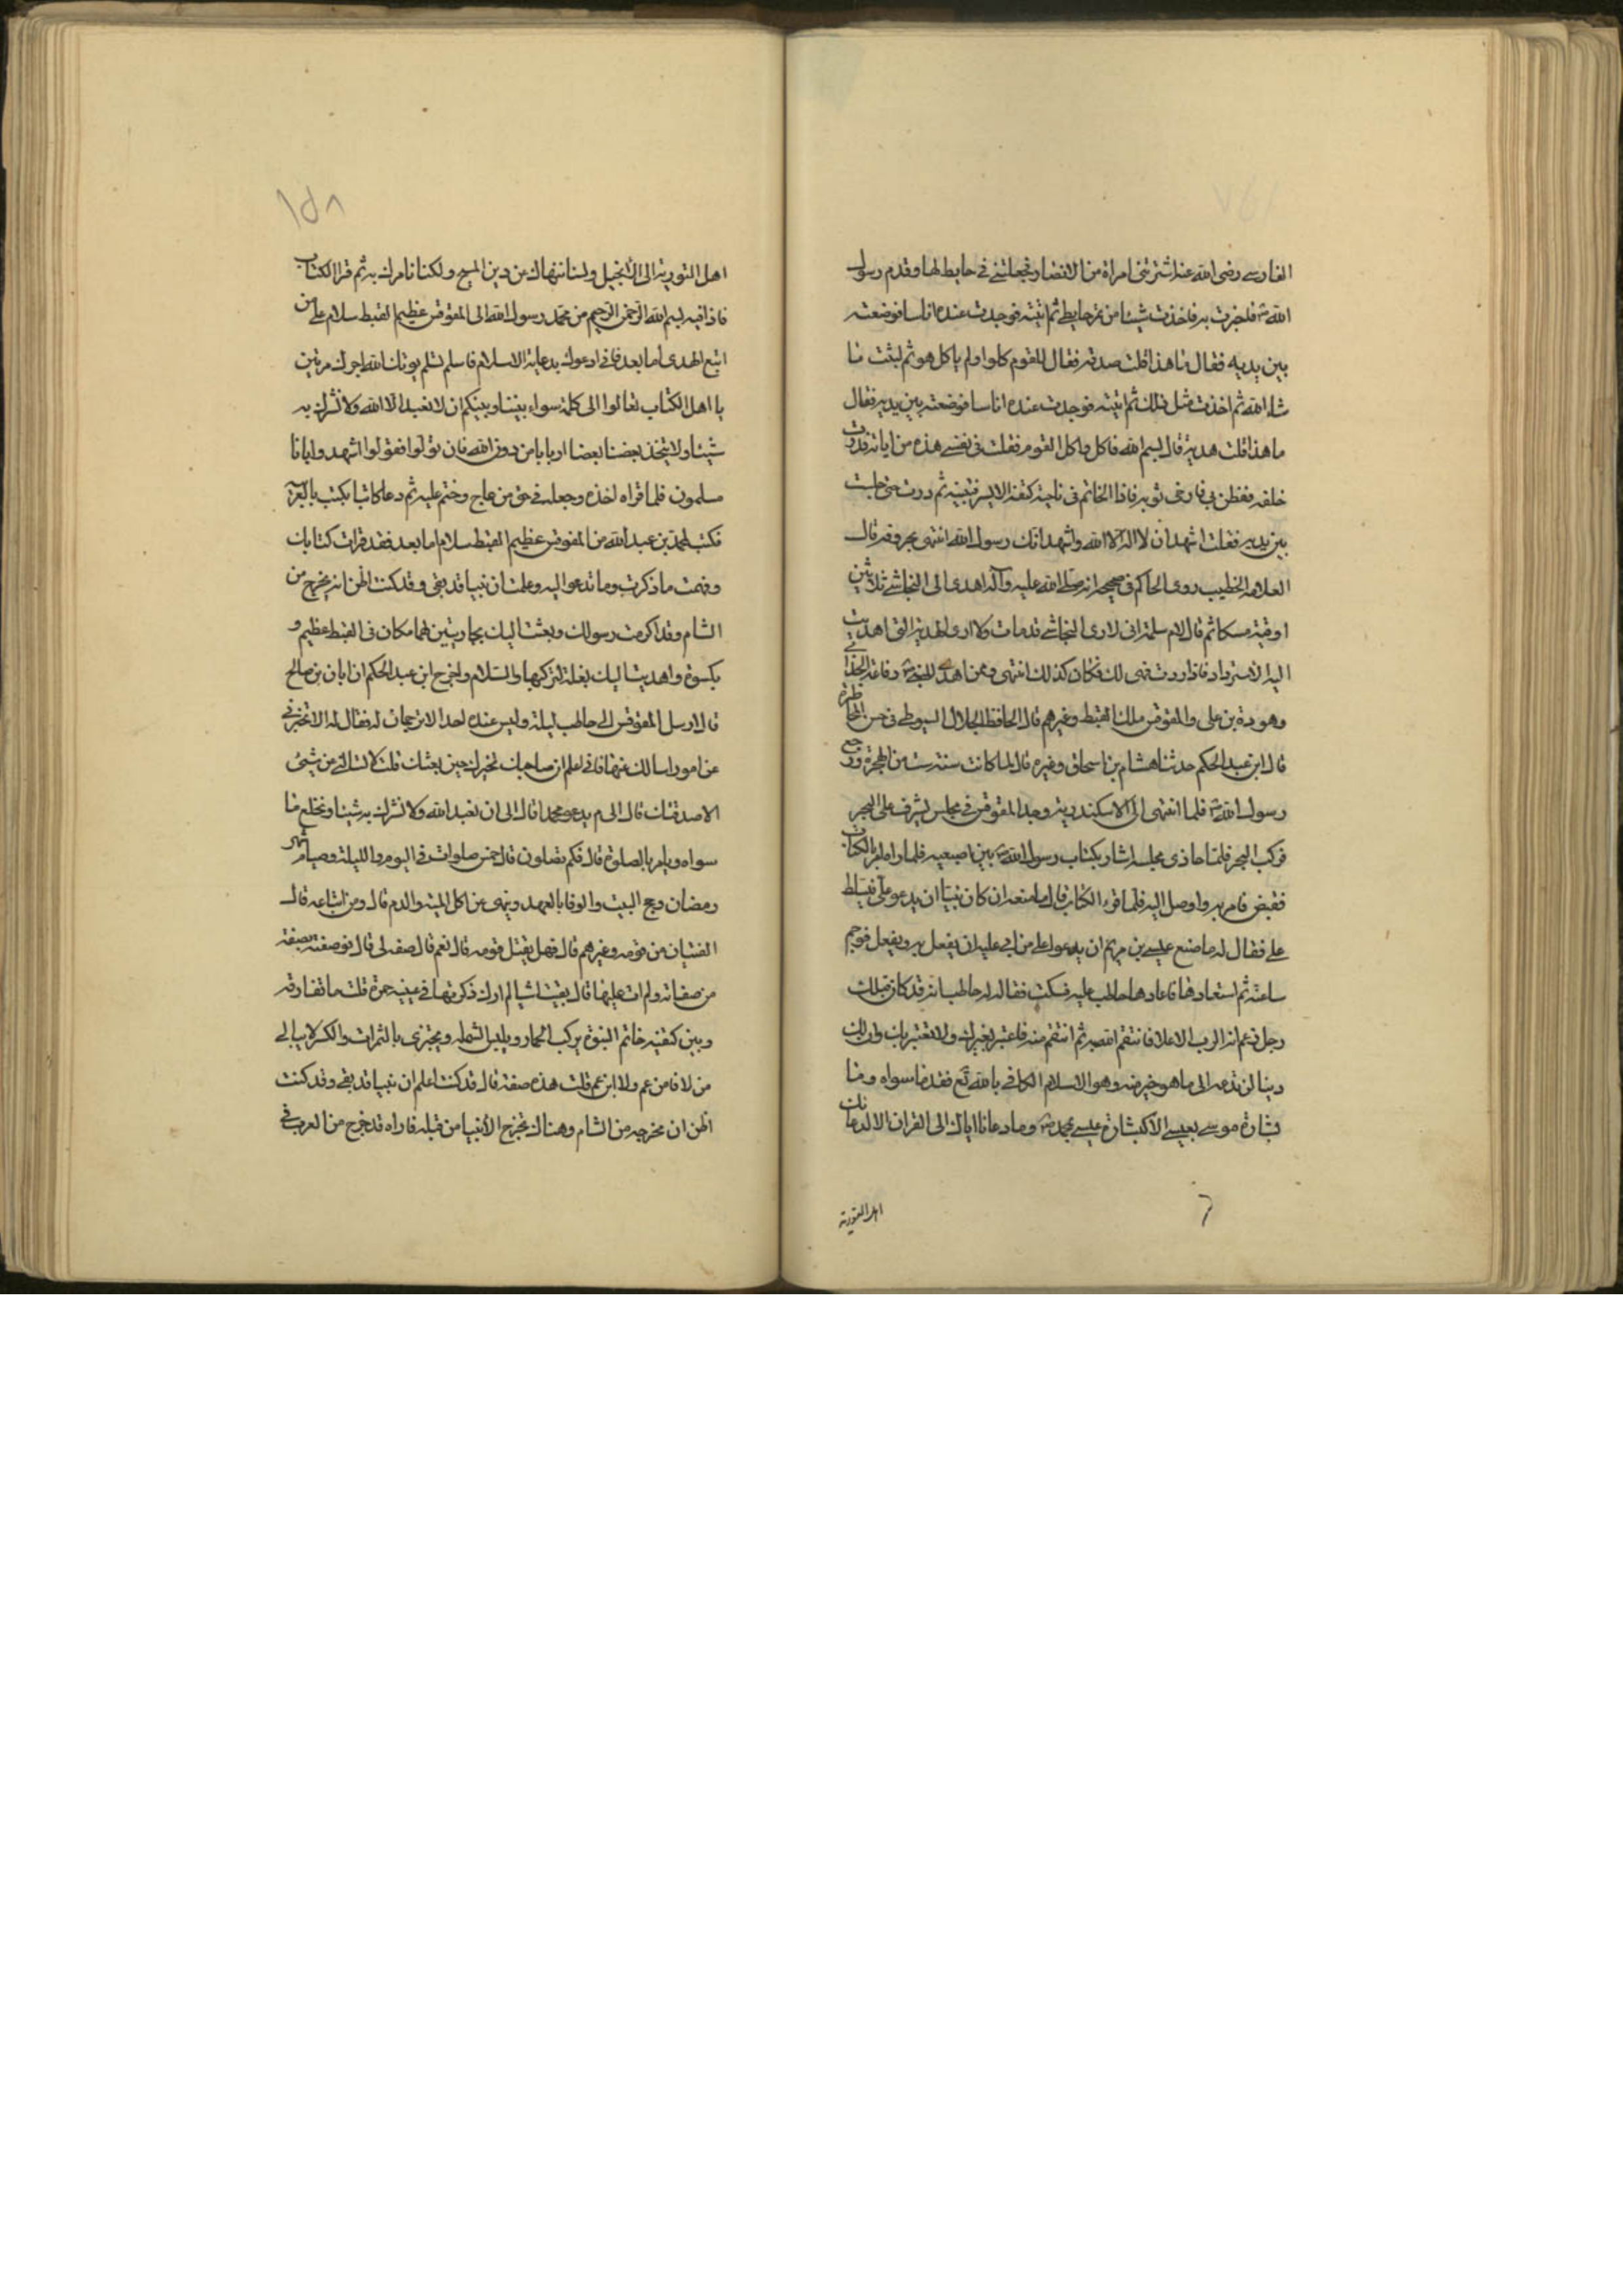 الفارسي رضى الله عنه اشترتني امراة من الانصار فجعلتني في حايط لها وقدم رسول
الله ص فاخبرت به فاخذت شيئا من تمر حايطي ثم اتيته فوجدت عنده اناسا فوضعته
بين يديه فقال ما هذا قلت صدقة فقال للقوم كلوا ولم ياكل هو ثم لبثت ما
شاء الله ثم اخذت مثل ذلك ثم اتيته فوجدت عنده اناسا فوضعته بين يديه فقال
ما هذا قلت هدية قال بسم الله فاكل واكل القوم فقلت في نفسي هذه من اياته فدرت
خلفه ففطن بي فارخى ثوبه فاذا الخاتم في ناحية كتفه الايسر فتبينه ثم درت حتى جلست
بين يديه فقلت اشهد ان لا اله الا الله واشهد انك رسول الله انتهى بحروفه قال
العلامة الخطيب روى الحاكم في صحيحه انه صلى الله عليه وآله اهدى الى النجاشي ثلاثين
اوقية مسكا ثم قال لام سلمة اني لارى النجاشي قد مات ولا ارى الهدية التي اهديت
اليه الا سترد فاذا ردت فهي لك فكان كذلك انتهى وممن اهدى للنبي ص رفاعة الجذامي
وهوذة بن علي والمقوقس ملك القبط وغيرهم قال الحافظ الجلال السيوطي في حسن المحاضرة
قال ابن عبد الحكم حدثنا هشام بن اسحاق وغيره قال لما كانت سنة ست من الهجرة ورجع
رسول الله ص فلما انتهى الى الاسكندرية وجد المقوقس في مجلس يشرف على البحر
فركب البحر فلما حاذى مجلسه اشار بكتاب رسول الله ص بين اصبعيه فلما راه امر بالكتاب
فقبض فامر به واوصل اليه فلما قرء الكتاب قال ما منعه ان كان نبيا ان يدعو علي فيسلط
علي فقال له ما منع عيسى بن مريم ان يدعو على من ابى عليه ان يفعل به ويفعل فوجم
ساعة ثم استعادها فاعادها حاطب عليه فسكت فقال له حاطب انه قد كان قبلك
رجل زعم انه الرب الاعلا فانتقم الله به ثم انتقم منه فاعتبر بغيرك ولا تعتبر بك وان لك
دينا لن تدعه الى ما هو خير منه وهو الاسلام الكافي بالله تع فقد ما سواه وما
بشارة موسى بعيسى الا كبشارة عيسى بمحمد ص وما دعانا اياك الى القران الا كدعائك
اهل التورية
اهل التورية الى الانجيل ولسنا ننهاك عن دين المسيح ولكنا نامرك به ثم قرا الكتاب
فاذا فيه بسم الله الرحمن الرحيم من محمد رسول الله الى المقوقس عظيم القبط سلام على من
اتبع الهدى اما بعد فاني ادعوك بدعاية الاسلام فاسلم تسلم يوتك الله اجرك مرتين
يا اهل الكتاب تعالوا الى كلمة سواء بيننا وبينكم ان لا نعبد الا الله ولا نشرك به
شيئا ولا يتخذ بعضنا بعضا اربابا من دون الله فان تولوا فقولوا اشهدوا بانا
مسلمون فلما قراه اخذه وجعله في حق من عاج وختم عليه ثم دعا كاتبا يكتب بالعربية
فكتب لمحمد بن عبد الله من المقوقس عظيم القبط سلام اما بعد فقد قرات كتابك
وفهمت ما ذكرت وما تدعو اليه وعلمت ان نبيا قد بقي وقد كنت اظن انه يخرج من
الشام وقد اكرمت رسولك وبعثت اليك بجاريتين لهما مكان في القبط عظيم و
بكسوة واهديت اليك بغلة لتركبها والسلام واخرج ابن عبد الحكم ان ابان بن صالح
قال ارسل المقوقس الى حاطب ليلة وليس عنده احد الا ترجمان له فقال له الا تخبرني
عن امور اسالك عنها فاني اعلم ان صاحبك تخيرك حين بعثك قلت لا تسالني عن شيئ
الا صدقتك قال الى م يدعو محمد قال الى ان نعبد الله ولا نشرك به شيئا ونخلع ما
سواه ويامر بالصلوة قال فكم تصلون قال خمس صلوات في اليوم والليلة وصيام شهر
رمضان وحج البيت والوفا بالعهد وينهى عن اكل الميتة والدم قال ومن اتباعه قال
الفتيان من قومه وغيرهم قال فهل يقتل قومه قال نعم قال صفه لي قال فوصفته بصفة
من صفاته ولم ات عليها قال بقيت اشيا لم ارك ذكرتها في عينيه حمرة قلت ما تفارقه
وبين كتفيه خاتم النبوة يركب الحمار ويلبس الشمله ويجتزي بالثمرات والكسر لا يبالي
من لاقا من عم ولا ابن عم قلت هذه صفته قال قد كنت اعلم ان نبيا قد بقي وقد كنت
اظن ان مخرجه من الشام وهناك تخرج الانبيا من قبله فاراه قد خرج من العرب في